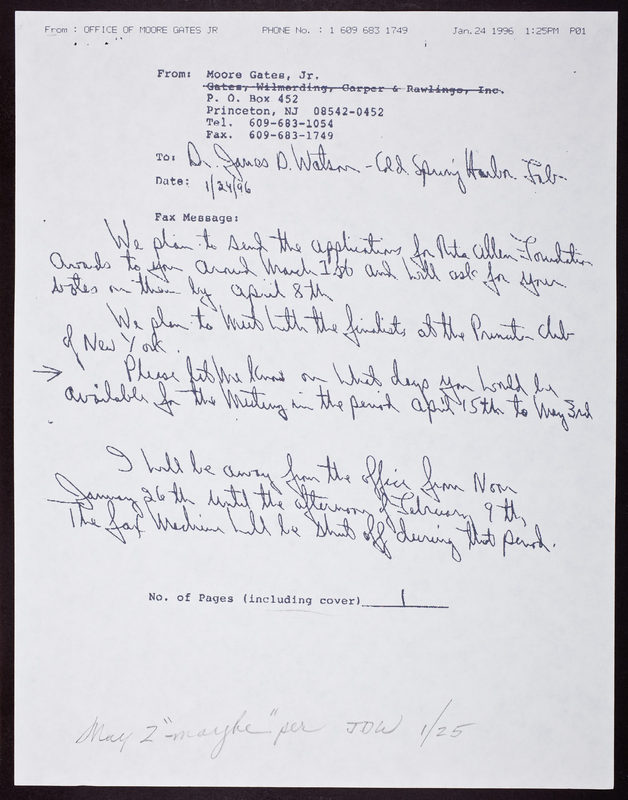 From : OFFICE OF MOORE GATES JR PHONE No. : 1 609 683 1749 Jan.24 1996 1:25PM P01
From: Moore Gates, Jr.
Gates, Wilmerding, Carper & Rawlings, Inc.
P. O. Box 452
Princeton, NJ 08542-0452
Tel. 609-683-1054
Fax. 609-683-1749
To: Dr. James D. Watson - Cold Spring Harbor Lab-
Date: 1/24/96
Fax Message:
We plan to send the applications for Rita Allen Foundation
Awards to you around March 1st and will ask for your
votes on them by April 8th
We plan to meet with the finalists at the Princeton Club
of New York.
→ Please let me know on what days you would be
available for the meeting in the period April 15th to May 3rd
I will be away from the office from Noon
January 26th until the afternoon of February 9th,
The fax machine will be shut off during that period.
No. of Pages (including cover) 1
May 2 "maybe" per JDW 1/25